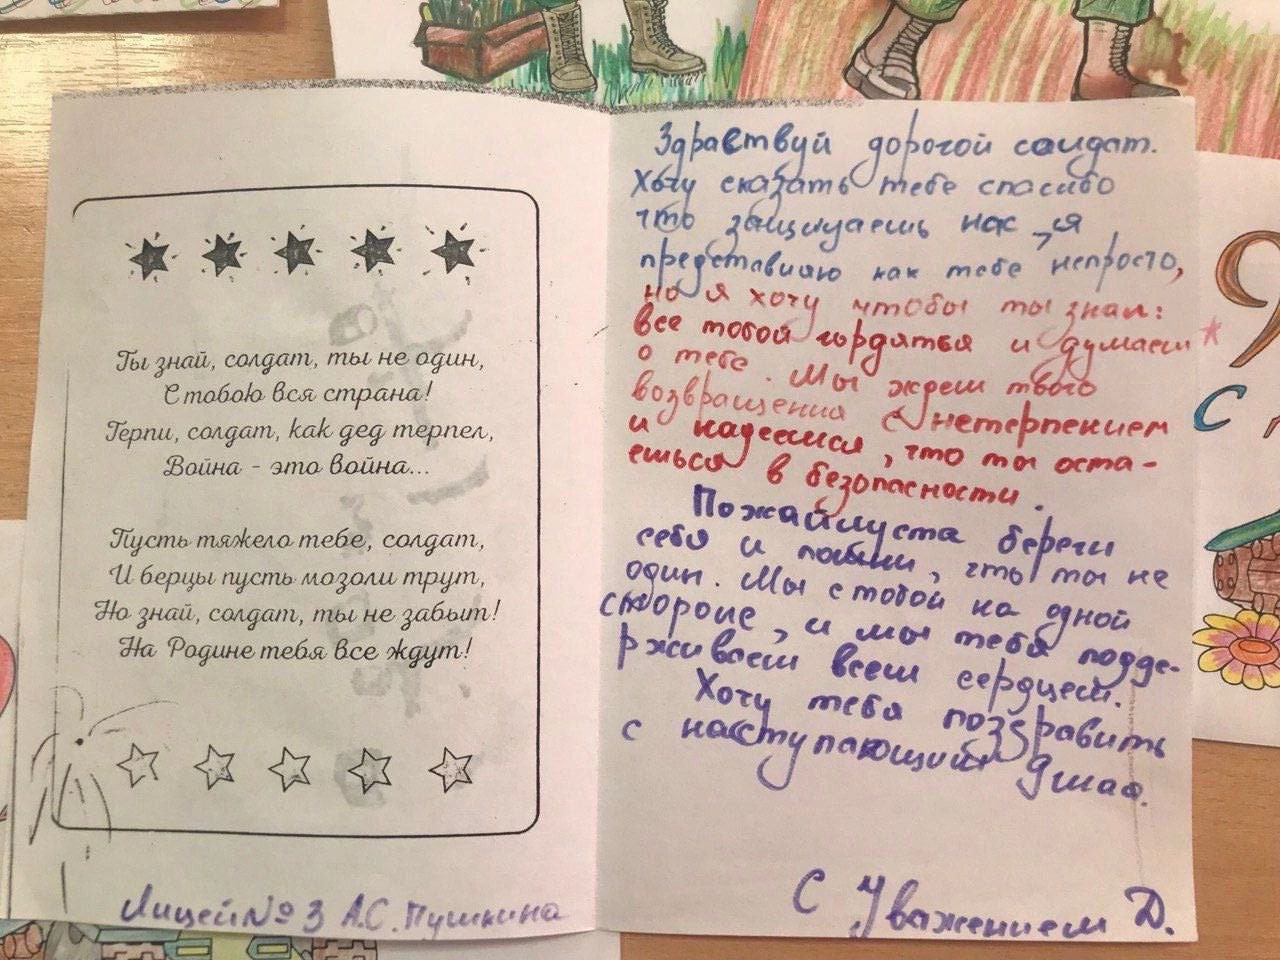 Ты знай, солдат, ты не один,
С тобою вся страна!
Терпи, солдат, как дед терпел,
Война - это война...
Пусть тяжело тебе, солдат,
И берцы пусть мозоли трут,
Но знай, солдат, ты не забыт!
На Родине тебя все ждут!
Лицей№ 3 А.С. Пушкина
Здравствуй дорогой солдат.
Хочу сказать тебе спасибо
что защищаешь нас , я
представляю как тебе непросто,
но я хочу чтобы ты знал:
все тобой гордятся и думаем
о тебе. Мы ждем твоего
возвращения с нетерпением
и надеемся, что ты оста-
ешься в безопасности.
Пожайлуста береги
себя и помни, что ты не
один. Мы с тобой на одной
стороне, и мы тебя подде-
рживаем всем сердцем.
Хочу тебя поздравить
с наступающим 9 мая.
С Уважением Д.
9
С